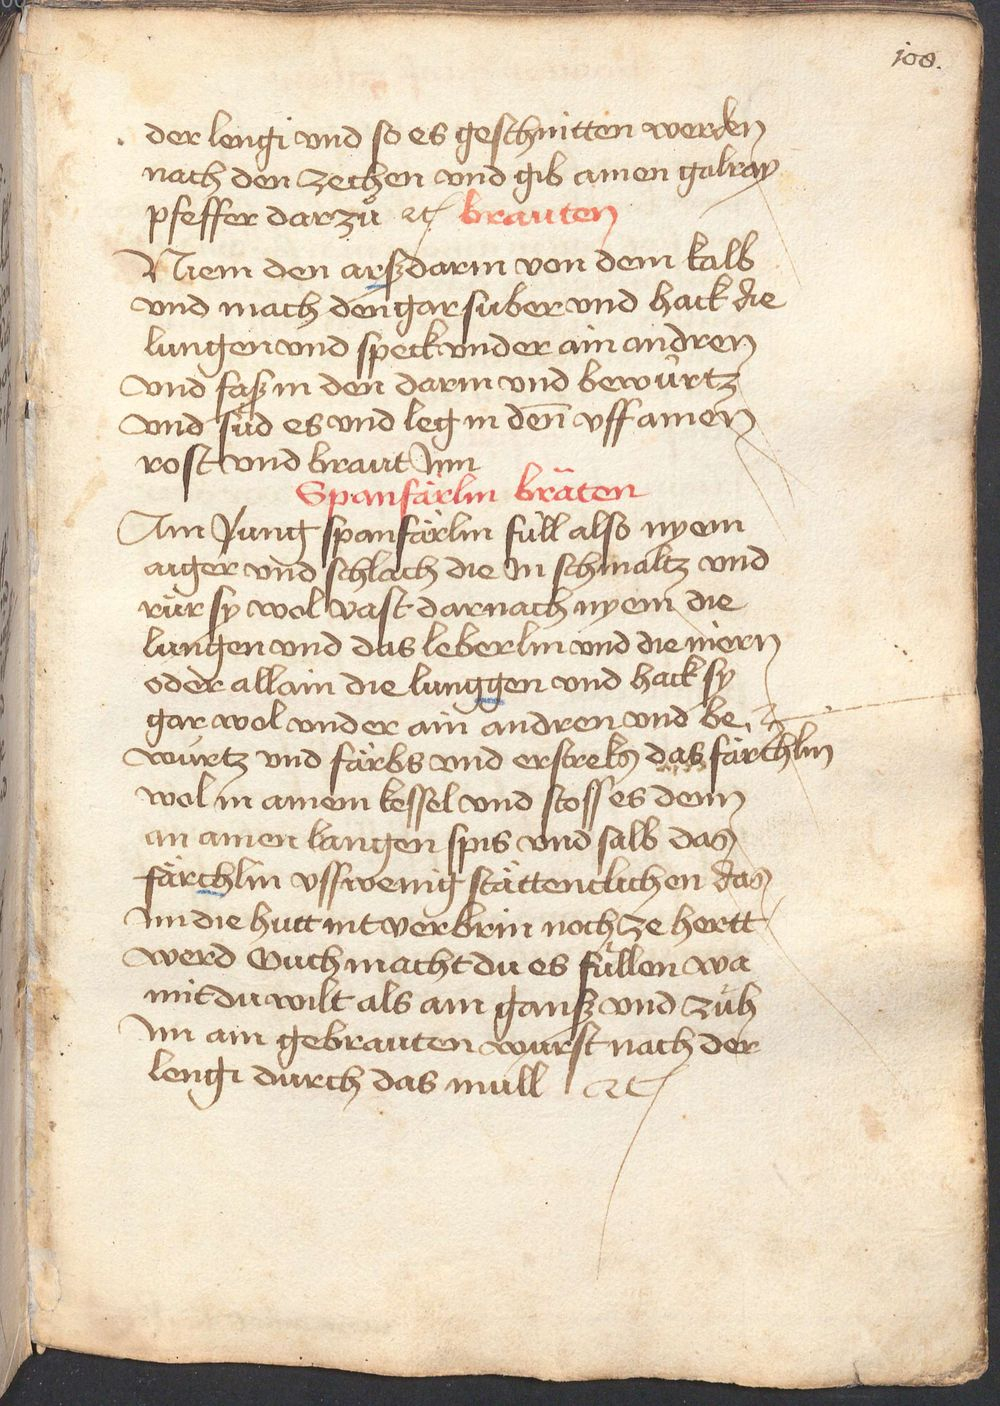 108.
der lengi vnd so es geschnitten werden
nach den zechen vnd gib ainen galray
pfeffer darzů ꝛc brauten
Niem den arßdarm von dem kalb
vnd mach den gar suber vnd hack die
lungen vnd speck vnder ain andren
vnd faß in den darm vnd bewúrtz
vnd súd es vnd leg in den̄ vff ainen
rost vnd braut Inn
Spanfärlin bräten
Ain Jung spanfärlin fúll also nyem
aiger vnd schlach die In schmaltz vnd
rúr sy wol vast darnach nyem die
lungen vnd das leberlin vnd die niern
oder allain die lunggen vnd hack sy
gar wol vnder ain andren vnd be
wúrtz vnd färbs vnd das färchlin
wol in ainem kessel vnd stoss es denn
an ainen langen spis vnd salb das
färchlin vsswenig stättenclichen das
Im die hutt nit verbrin noch ze hertt
werd Ouch macht du es fúllen wa
mit du wilt als ain ganß vnd zúh
Im ain gebrauten wurst nach der
lengi durch das mull ꝛc